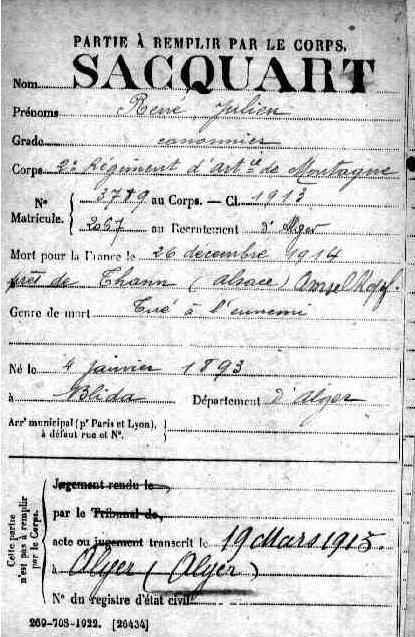 PARTIE À REMPLIR PAR LE CORPS.
Nom SACQUART
Prénoms René Julien
Grade canonnier
Corps 2e Régiment d'artie de Montagne
N° Matricule. 3789 au Corps. — Cl. 1913
2067 au Recrutement d'Alger
Mort pour la France le 26 décembre 1914
près de Thann (alsace)
Genre de mort Tué à l'ennemi
Né le 4 janvier 1893
à Blida Département d'Alger
Arrt municipal (pr Paris et Lyon), à défaut rue et N°.
Cette partie n'est pas à remplir par le Corps.
Jugement rendu le
par le Tribunal de
acte ou jugement transcrit le 19 Mars 1915
à Alger (Alger)
N° du registre d'état civil
269-708-1922. [26434]